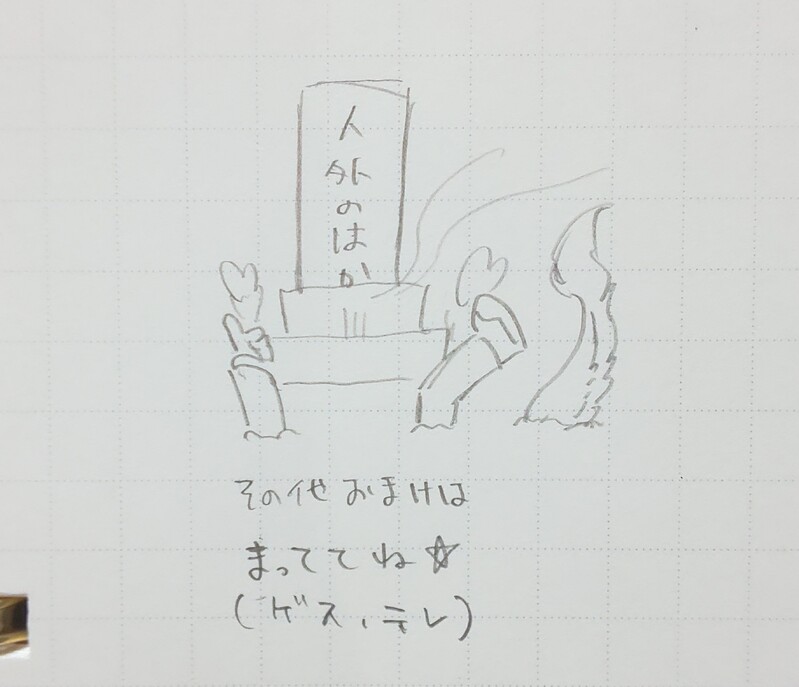 人外のはか
その他 おまけは
まっててね☆
(ゲス、テレ)